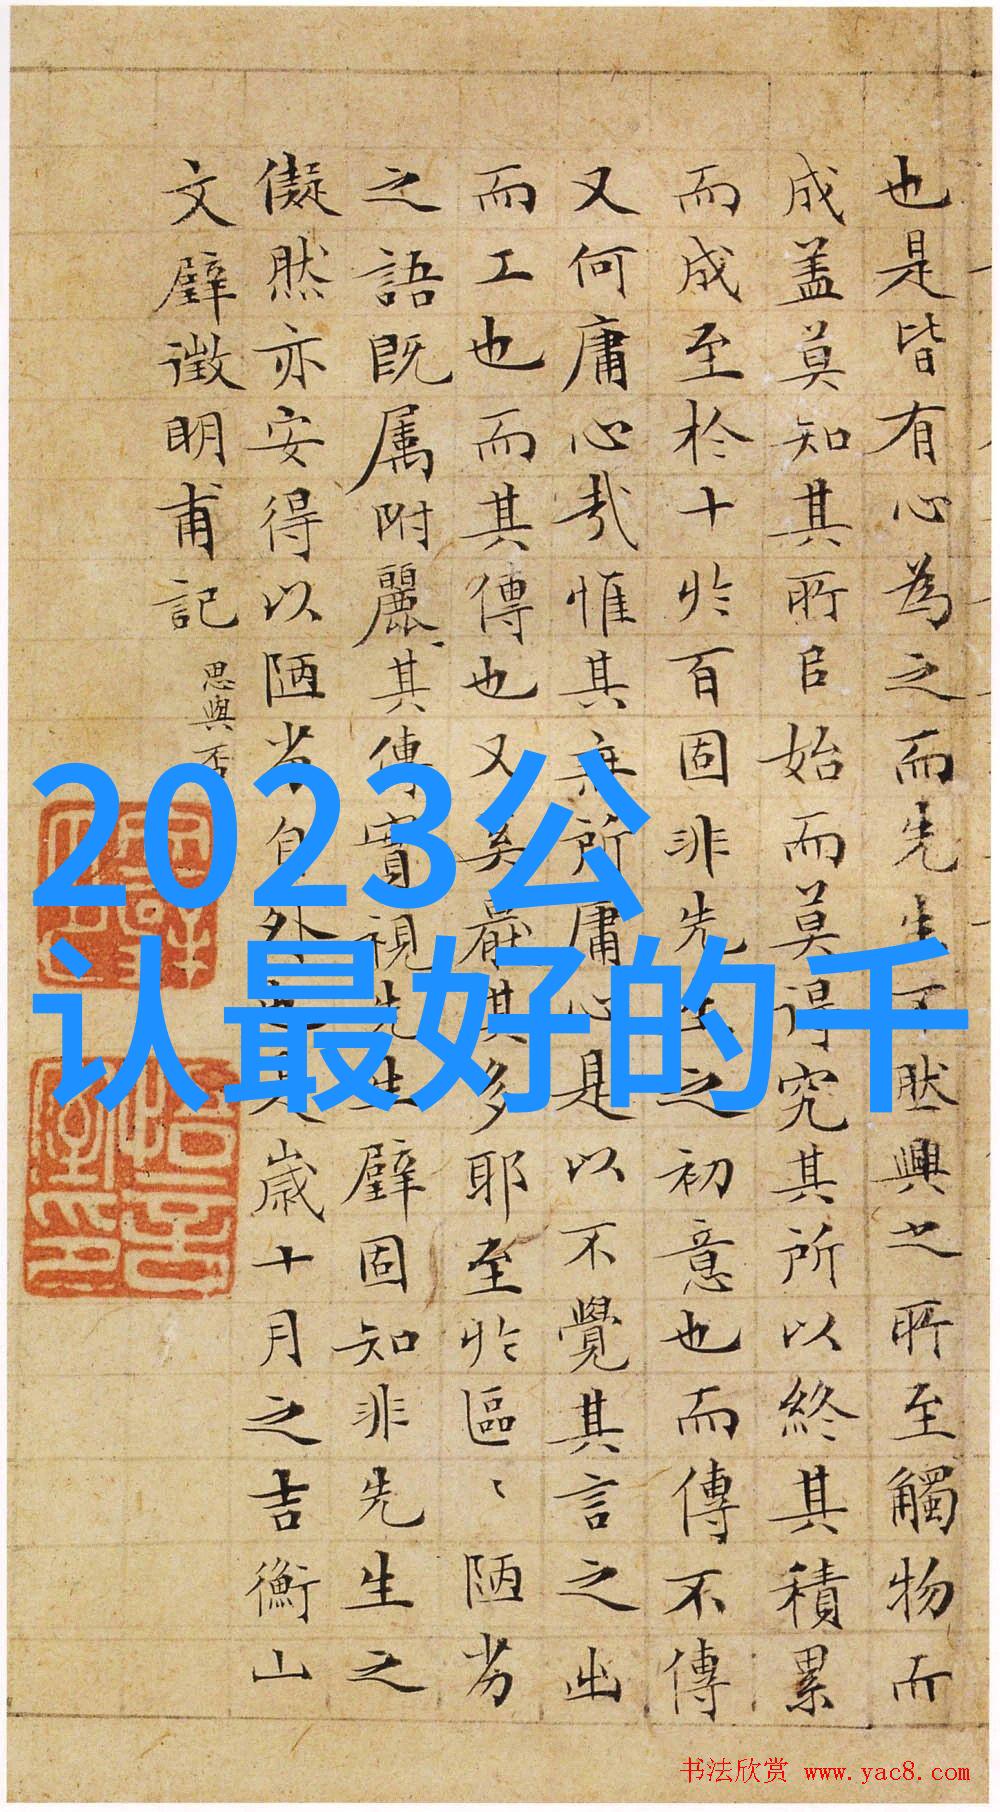 也是皆有心為之而先生不然興之所至觸物而
成盖莫知其所自始而莫得究其所以終其積累
而成至於十於百固非先生之初意也而傳不傳
又何庸心哉惟其無所庸心是以不覺其言之出
而工也而其傳也又奚厭其多耶至於區〻陋劣
之語既属附麗其傳實視先生璧固知非先生之
儗然亦安得以陋劣自外也是歲十月之吉衡山
文璧徵明甫記 思與否
2023公
认最好的千
书法欣赏 www.yac8.com